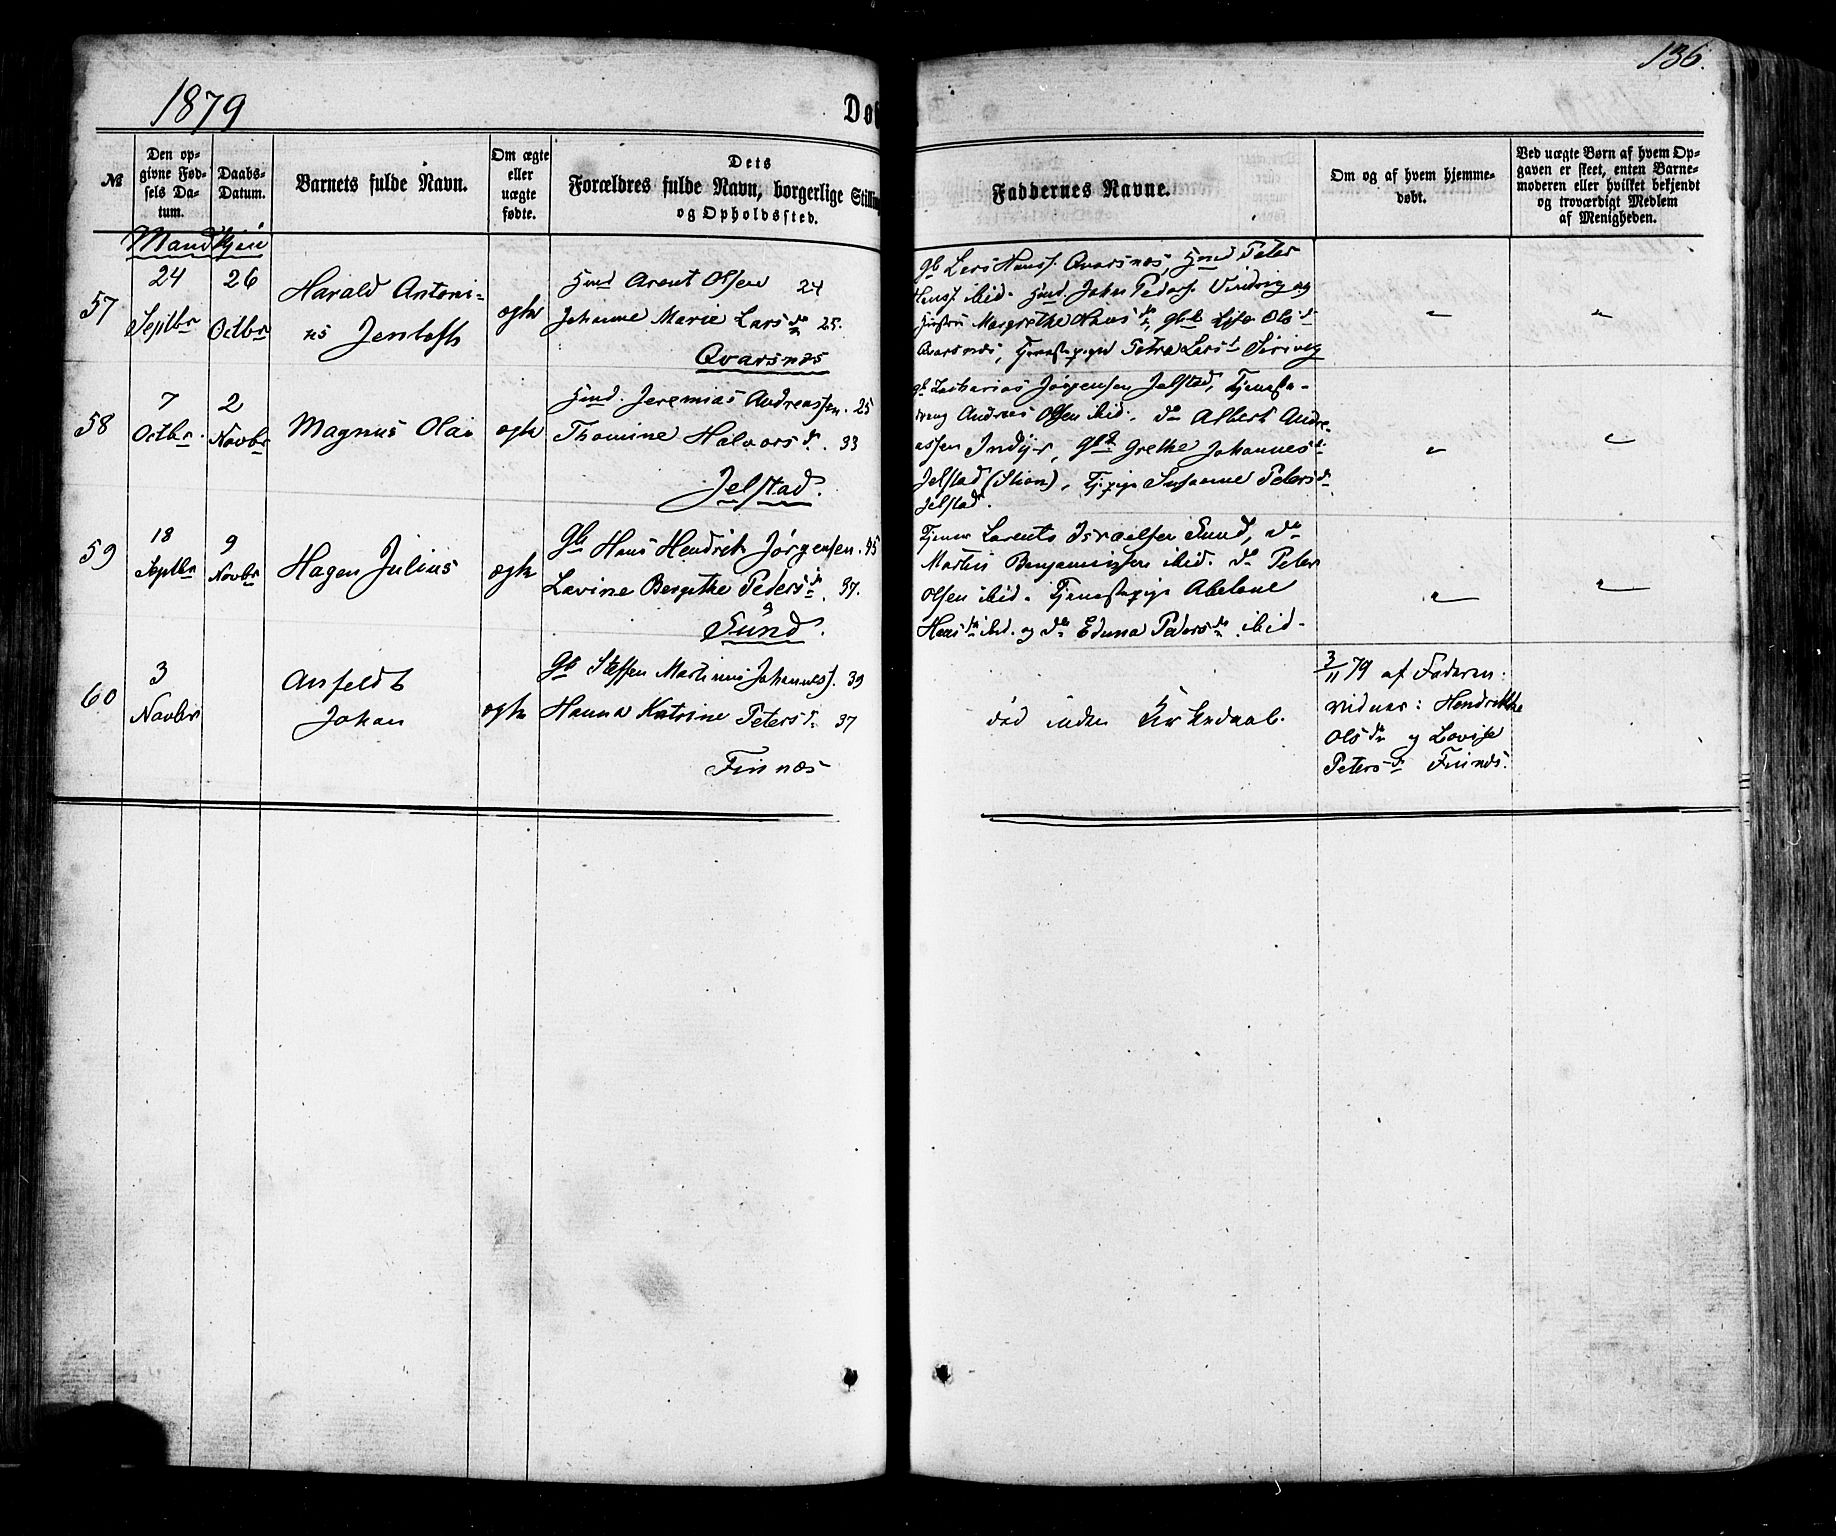 136.
1879
Døb
№
Den op-
givne Fød-
sels Da-
tum.
Daabs-
Datum.
Barnets fulde Navn.
Om ægte
eller
uægte
fødte.
Dets
Forældres fulde Navn, borgerlige Still
og Opholdssted.
Faddernes Navne.
Om og af hvem hjemme-
døbt.
Ved uægte Børn af hvem Op-
gaven er skeet, enten Barne-
moderen eller hvilket bekjendt
og troværdigt Medlem
af Menigheden.
Mandkjøn
57
24
Septbr
26
Octbr
Harald Antoni-
us Jentoft
ægte
Hmd Arent Olsen 24
Johanne Marie Larsdr 25.
Qvarsnæs
Gb Lars Hanss. Qvarsnæs, Hmd Peter
Hanss ibid. Hmd Johan Peders. og
Margrethe Hansdr, Olsd
Qvarsnæs, Tjenestepige Petra Larsd
"
"
58
7
Octbr.
2
Novbr
Magnus Olai
ægte
Hmd. Jeremias Andreassen. 25
Thomine Halvorsdr. 33
Jelstad.
Gb Zacharias Jørgensen Jelstad, Tjeneste-
dreng Andreas Olsen ibid. do Albert Andre-
assen Indyr, Grethe Johannesd
Jelstad (Stien), Tjpige Susanne Petersdr
Jelstad.
"
"
59
18
Septbr
9
Novbr
Hagen Julius
ægte
Gb Hans Hendrik Jørgensen. 45
Lavine Bergithe Pedersdr. 37.
Sund.
Tjener Lorents Israelsen Sund, do
Martin Benjaminsen ibid. do Peter
Olsen ibid. Tjenestepige Abelone
Hansdr ibid. og do Edena Pedersdr ibid.
"
"
60
3
Novbr
Anfeldt
Johan
ægte
Gb Steffen Martinus Johanness. 39
Hanna Katrine Petersdr 37
Finnæs
død inden Kirkedaab.
3/11 79 af Faderen:
Vidner: Hendrikke
Olsdr og Lovise
Petersdr Finnæs.